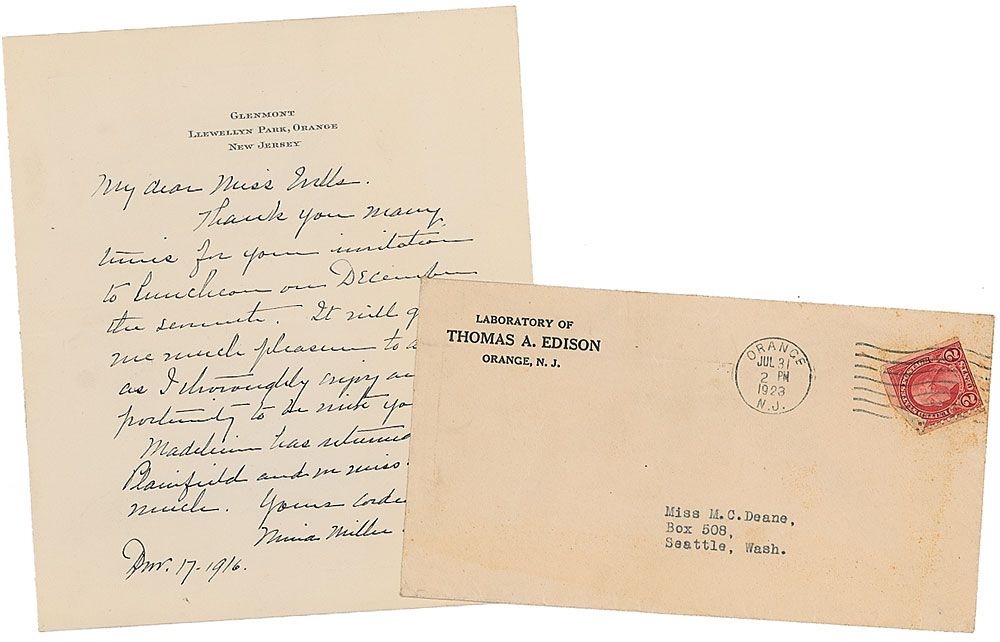 GLENMONT
LLEWELLYN PARK, ORANGE
NEW JERSEY
My dear Miss
Thank you many
times for your invitation
to luncheon on December
the seventh. It will g
me much pleasure to a
as I thoroughly enjoy an
portunity to be with yo
Madeleine has returned
Plainfield and we miss
much. Yours cordi
Mina Miller
17-1916.
LABORATORY OF
THOMAS A. EDISON
ORANGE, N. J.
ORANGE
JUL 31
2 PM
1923
N.J.
Miss M.C.Deane,
Box 508,
Seattle, Wash.
2
2